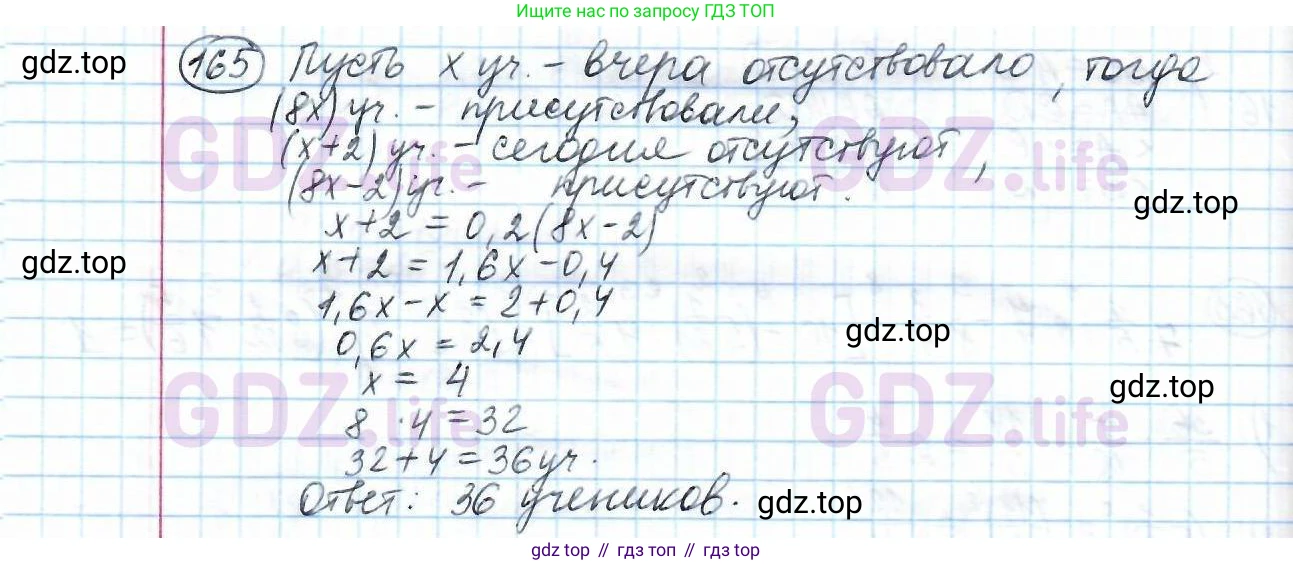 Ищите нас по запросу ГДЗ ТОП
gdz.top
165 Пусть x уч. - вчера отсутствовало, тогда
(8x) уч. - присутствовали,
GDZ.life GDZ.life
(x+2) уч. - сегодня отсутствуют,
(8x-2) уч. - присутствуют.
gdz.top
x+2 = 0,2(8x-2)
gdz.top
x+2 = 1,6x-0,4
1,6x-x = 2+0,4
gdz.top
0,6x = 2,4
x = 4
gdz.top
GDZ.life GDZ.life
8 · 4 = 32
32+4=36 уч.
Ответ: 36 учеников.
gdz.top
gdz top // гдз топ // гдз top